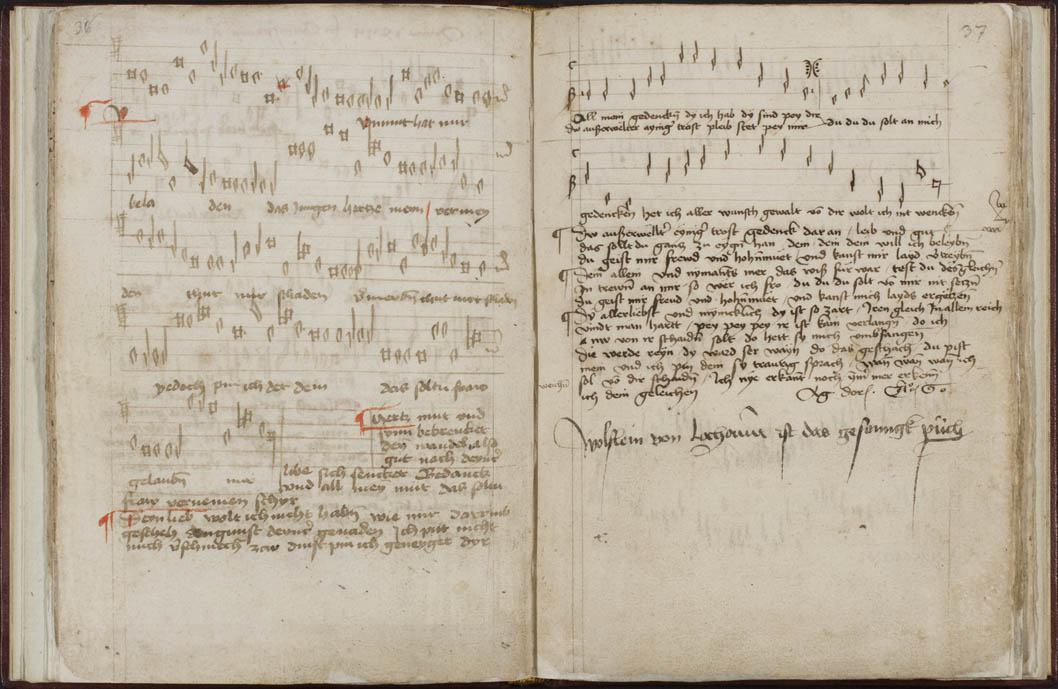 36
Unmut hat mir
bela den das Jungen hertze mein vermey
den thut mir schaden
yedoch pin ich der dein das soltu fraw
gelaubñ mir
Hertz mut und
synn bekrencket
dein wandel also
gut nach deiner
libe sich sencket Gedanck
und all mey mut das soltu
fraw vernemen schyr
Dein lieb wolt ich nicht habñ wie mir darumb
gescheh gunst deiner genaden Ich pitt nicht
mich zar dinst pin ich geneyget dyr
37
All mein gedencken dy ich hab dy sind pey dir
Dw außerwelter ayniger trost pleib stet pey mir du du du solt an mich
gedencken het ich aller wunsch gewalt võ dir wolt ich nit wencken
Dw außerwelter eyniger trost gedenck dar an leib und gut
das sollt du gancz zu eygen han dein dein dein will ich beleybñ
du geist mir frewd und hohñmuet und kanst mir layd vertreybñ
Dein allein und nymants mer das wiß fur war test du desgleichñ
In trewñ an mir so wer ich fro du du du solt võ mir nit setzñ
du geist mir freud und hohñmuet und kanst mich layds ergetzñ
Dy allerliebst und mynicklich dy ist so zart Iren gleich In allem reich
vindt man hartt pey pey pey ir ist kain verlangñ do ich
nw von ir schaidñ solt do hett sy mich umbfangen
Die werde reyn dy ward ser wayn do das geschach du pist
mein und ich pin dein sy traurig sprach wañ wañ wañ ich
sol võ dir schaidñ Ich nye erkant noch nim mer erkenn
ich dein geleichen
Wolflein von Lochamer ist das gesenngk püch